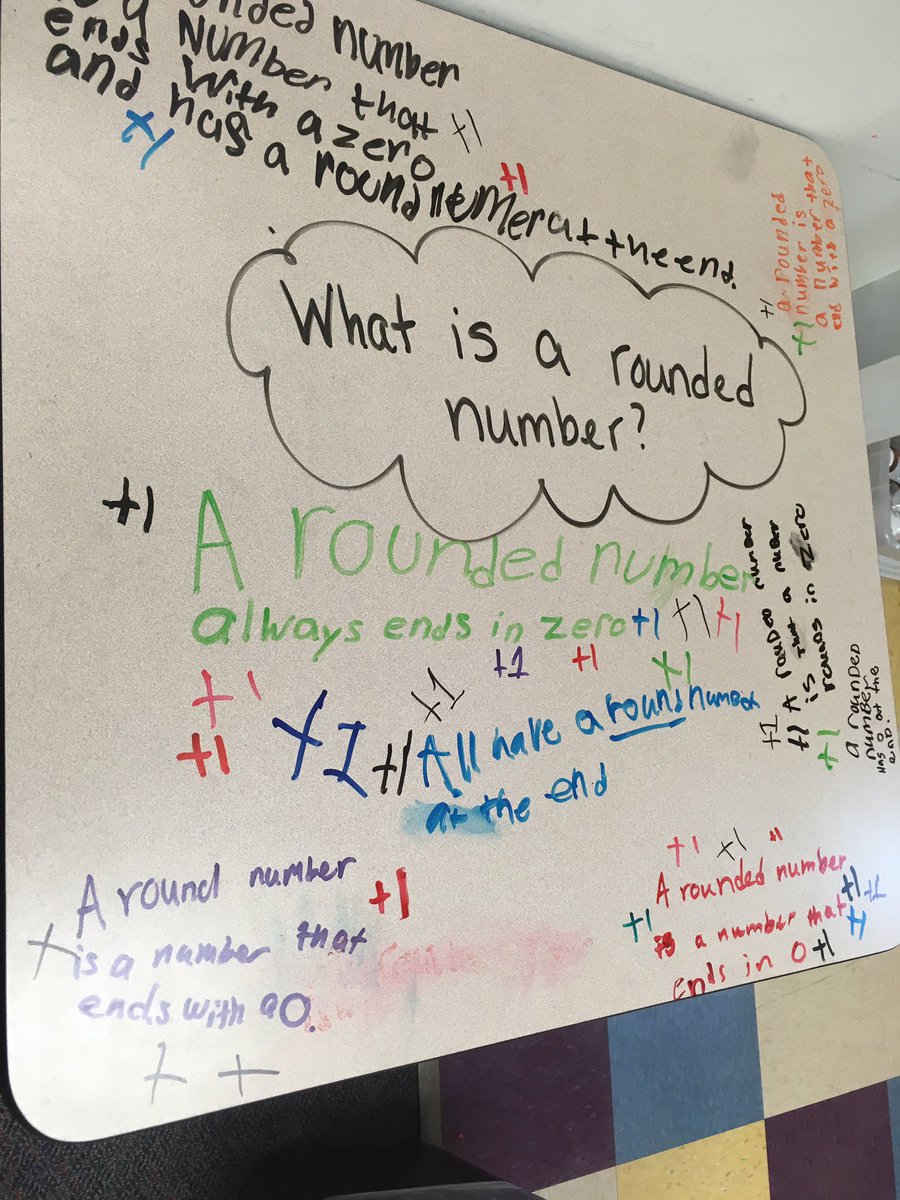 a rounded number
ends Number that +1
and with a zero
has a round numer at the end.
+1
+1
What is a rounded
number?
a rounded
number is
a number that
end with a zero
+1
+1
+1
A rounded number
always ends in zero +1 +1 +1
+1 +1 +1
+1 +1
+1 +1 +1
All have a round number
at the end
number
A rouded
is that a number
rounds in zero
+1
+1
+1
a rounded
number
Has 0 at the
end.
A round number
+1
is a number that
ends with a 0.
+ +
+1 +1 "
A rounded number
+1 is a number that +1 +1
ends in 0 +1 +1